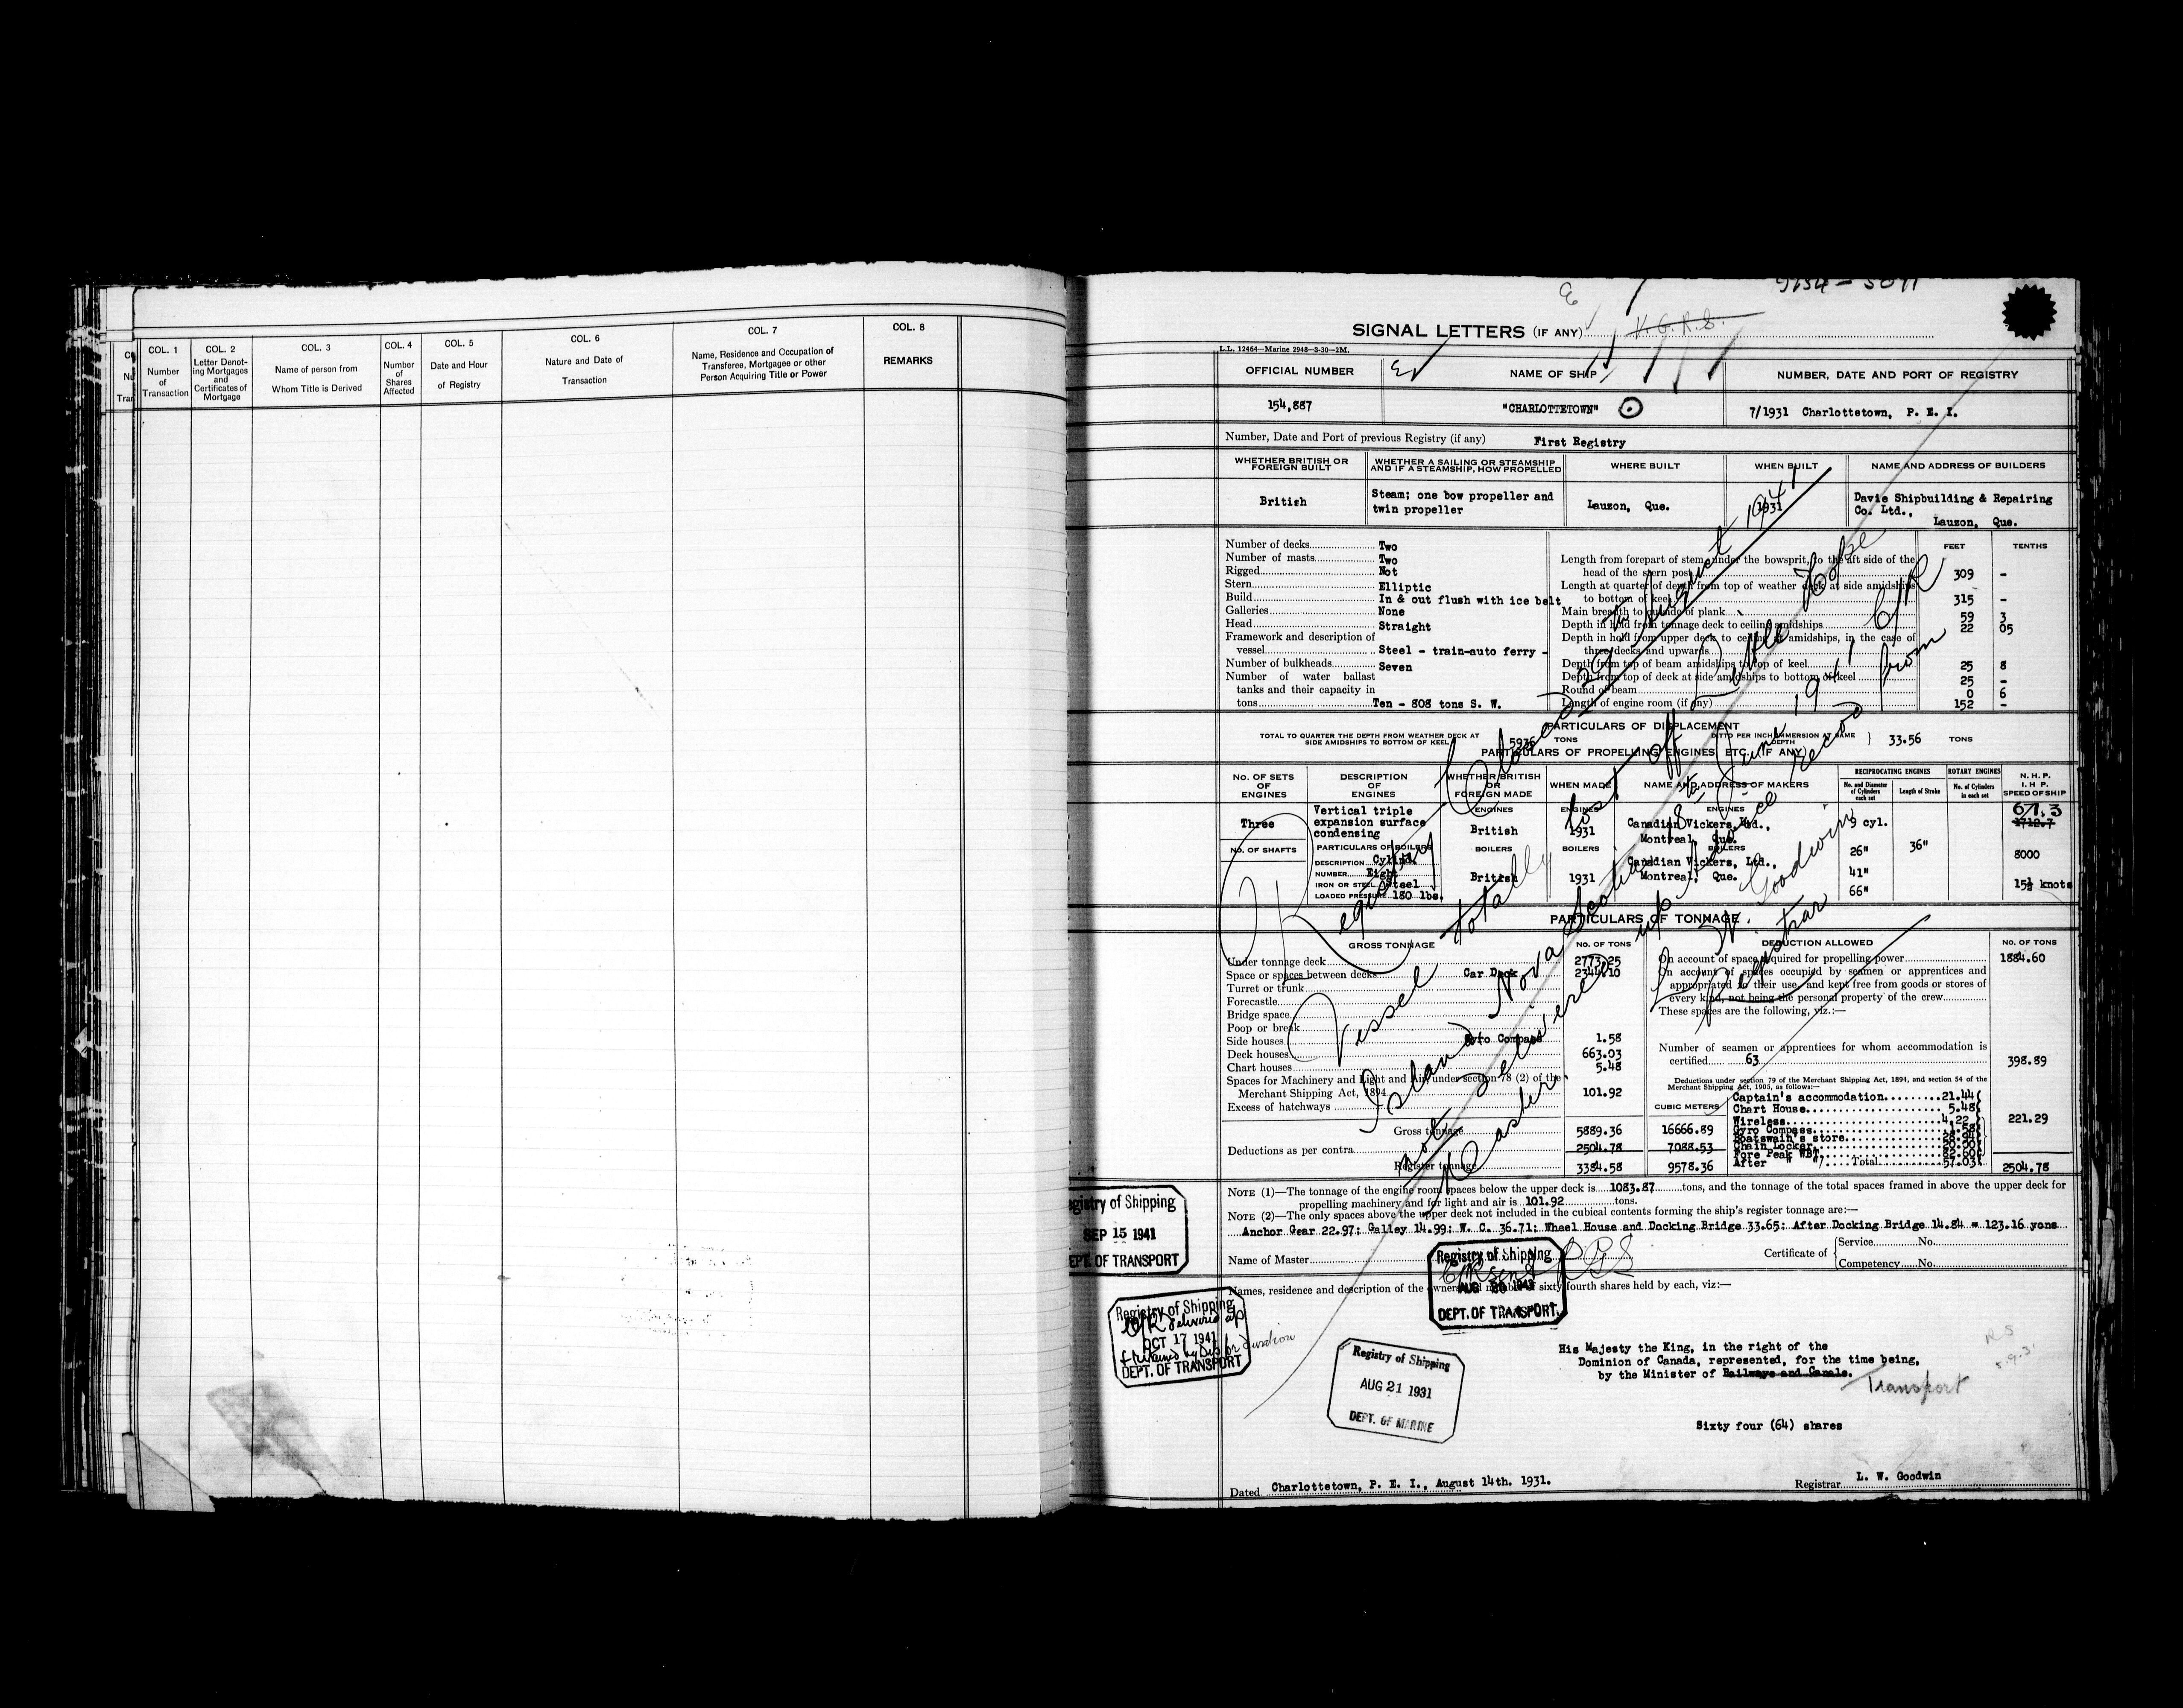 COL. 1
Number
of
Transaction
COL. 2
Letter Denot-
ing Mortgages
and
Certificates of
Mortgage
COL. 3
Name of person from
Whom Title is Derived
COL. 4
Number
of
Shares
Affected
COL. 5
Date and Hour
of Registry
COL. 6
Nature and Date of
Transaction
COL. 7
Name, Residence and Occupation of
Transferee, Mortgagee or other
Person Acquiring Title or Power
COL. 8
REMARKS
SIGNAL LETTERS (IF ANY)
L.L. 12464—Marine 2948—8-30—2M.
OFFICIAL NUMBER
NAME OF SHIP
NUMBER, DATE AND PORT OF REGISTRY
154,887
"CHARLOTTETOWN"
7/1931 Charlottetown, P. E. I.
Number, Date and Port of previous Registry (if any) First Registry
WHETHER BRITISH OR
FOREIGN BUILT
WHETHER A SAILING OR STEAMSHIP
AND IF A STEAMSHIP, HOW PROPELLED
WHERE BUILT
WHEN BUILT
NAME AND ADDRESS OF BUILDERS
British
Steam; one bow propeller and
twin propeller
Lauzon, Que.
1931
Davie Shipbuilding & Repairing
Co. Ltd.,
Lauzon, Que.
Number of decks Two
Number of masts Two
Rigged Not
Stern Elliptic
Build In & out flush with ice belt
Galleries None
Head Straight
Framework and description of
vessel Steel - train-auto ferry -
Number of bulkheads Seven
Number of water ballast
tanks and their capacity in
tons Ten - 808 tons S. W.
FEET TENTHS
Length from forepart of stem, under the bowsprit, to the aft side of the
head of the stern post 309 -
Length at quarter of depth from top of weather deck at side amidships
to bottom of keel 315 -
Main breadth to outside of plank 59 3
Depth in hold from tonnage deck to ceiling amidships 22 05
Depth in hold from upper deck to ceiling at amidships, in the case of
three decks and upwards
Depth from top of beam amidships to top of keel 25 8
Depth from top of deck at side amidships to bottom of keel 25 -
Round of beam 0 6
Length of engine room (if any) 152 -
PARTICULARS OF DISPLACEMENT
TOTAL TO QUARTER THE DEPTH FROM WEATHER DECK AT
SIDE AMIDSHIPS TO BOTTOM OF KEEL 5936 TONS
DITTO PER INCH IMMERSION AT SAME
DEPTH 33.56 TONS
PARTICULARS OF PROPELLING ENGINES ETC. (IF ANY)
No. OF SETS
OF
ENGINES
DESCRIPTION
OF
ENGINES
WHETHER BRITISH
OR
FOREIGN MADE
WHEN MADE
NAME AND ADDRESS OF MAKERS
RECIPROCATING ENGINES
No. and Diameter
of Cylinders
each set
Length of Stroke
ROTARY ENGINES
No. of Cylinders
in each set
N. H. P.
I. H. P.
SPEED OF SHIP
Three
Vertical triple
expansion surface
condensing
ENGINES
British
ENGINES
1931
ENGINES
Canadian Vickers, Ltd.,
Montreal, Que.
9 cyl.
26"
41"
66"
36"
671.3
1712.7
8000
15½ knots
NO. OF SHAFTS
PARTICULARS OF BOILERS
DESCRIPTION Cylind.
NUMBER Eight
IRON OR STEEL Steel
LOADED PRESSURE 180 lbs.
BOILERS
British
BOILERS
1931
BOILERS
Canadian Vickers, Ltd.,
Montreal, Que.
PARTICULARS OF TONNAGE.
GROSS TONNAGE
No. OF TONS
DEDUCTION ALLOWED
NO. OF TONS
Under tonnage deck 2773.25
Space or spaces between decks Car Deck 2344.10
Turret or trunk
Forecastle
Bridge space
Poop or break
Side houses Gyro Compass 1.58
Deck houses 663.03
Chart houses 5.48
Spaces for Machinery and Light and Air, under section 78 (2) of the
Merchant Shipping Act, 1894 101.92
Excess of hatchways
CUBIC METERS
Gross tonnage 5889.36 16666.89
Deductions as per contra 2504.78 7088.53
Register tonnage 3384.58 9578.36
On account of space required for propelling power 1884.60
On account of spaces occupied by seamen or apprentices and
appropriated to their use, and kept free from goods or stores of
every kind, not being the personal property of the crew
These spaces are the following, viz.:—
Number of seamen or apprentices for whom accommodation is
certified 63 398.89
Deductions under section 79 of the Merchant Shipping Act, 1894, and section 54 of the
Merchant Shipping Act, 1905, as follows:—
Captain's accommodation 21.44
Chart House 5.48
Wireless 4.22
Gyro Compass 1.58
Boatswain's store
Chain Locker
Fore Peak WB
After " "
221.29
Total 57.03
2504.78
NOTE (1)—The tonnage of the engine room spaces below the upper deck is 1083.87 tons, and the tonnage of the total spaces framed in above the upper deck for
propelling machinery and for light and air is 101.92 tons.
NOTE (2)—The only spaces above the upper deck not included in the cubical contents forming the ship's register tonnage are:—
Anchor Gear 22.97; Galley 14.99; W. C. 36.71; Wheel House and Docking Bridge 33.65; After Docking Bridge 14.84 = 123.16 yons
Name of Master
Certificate of
Service No.
Competency No.
Names, residence and description of the owners and number of sixty fourth shares held by each, viz:—
His Majesty the King, in the right of the
Dominion of Canada, represented, for the time being,
by the Minister of Railways and Canals.
Transport
Sixty four (64) shares
Dated Charlottetown, P. E. I., August 14th. 1931.
Registrar L. W. Goodwin
Registry Closed 29th August 1941
Vessel totally lost off Little Hope
Island Nova Scotia 18th June 1941 C/R
not delivered up Advice recd from
Master.
L. W. Goodwin
Registrar
Registry of Shipping
SEP 15 1941
DEPT. OF TRANSPORT
Registry of Shipping
C/R delivered up
OCT 17 1941
DEPT. OF TRANSPORT
Registry of Shipping
AUG
DEPT. OF TRANSPORT.
Registry of Shipping
AUG 21 1931
DEPT. OF MARINE